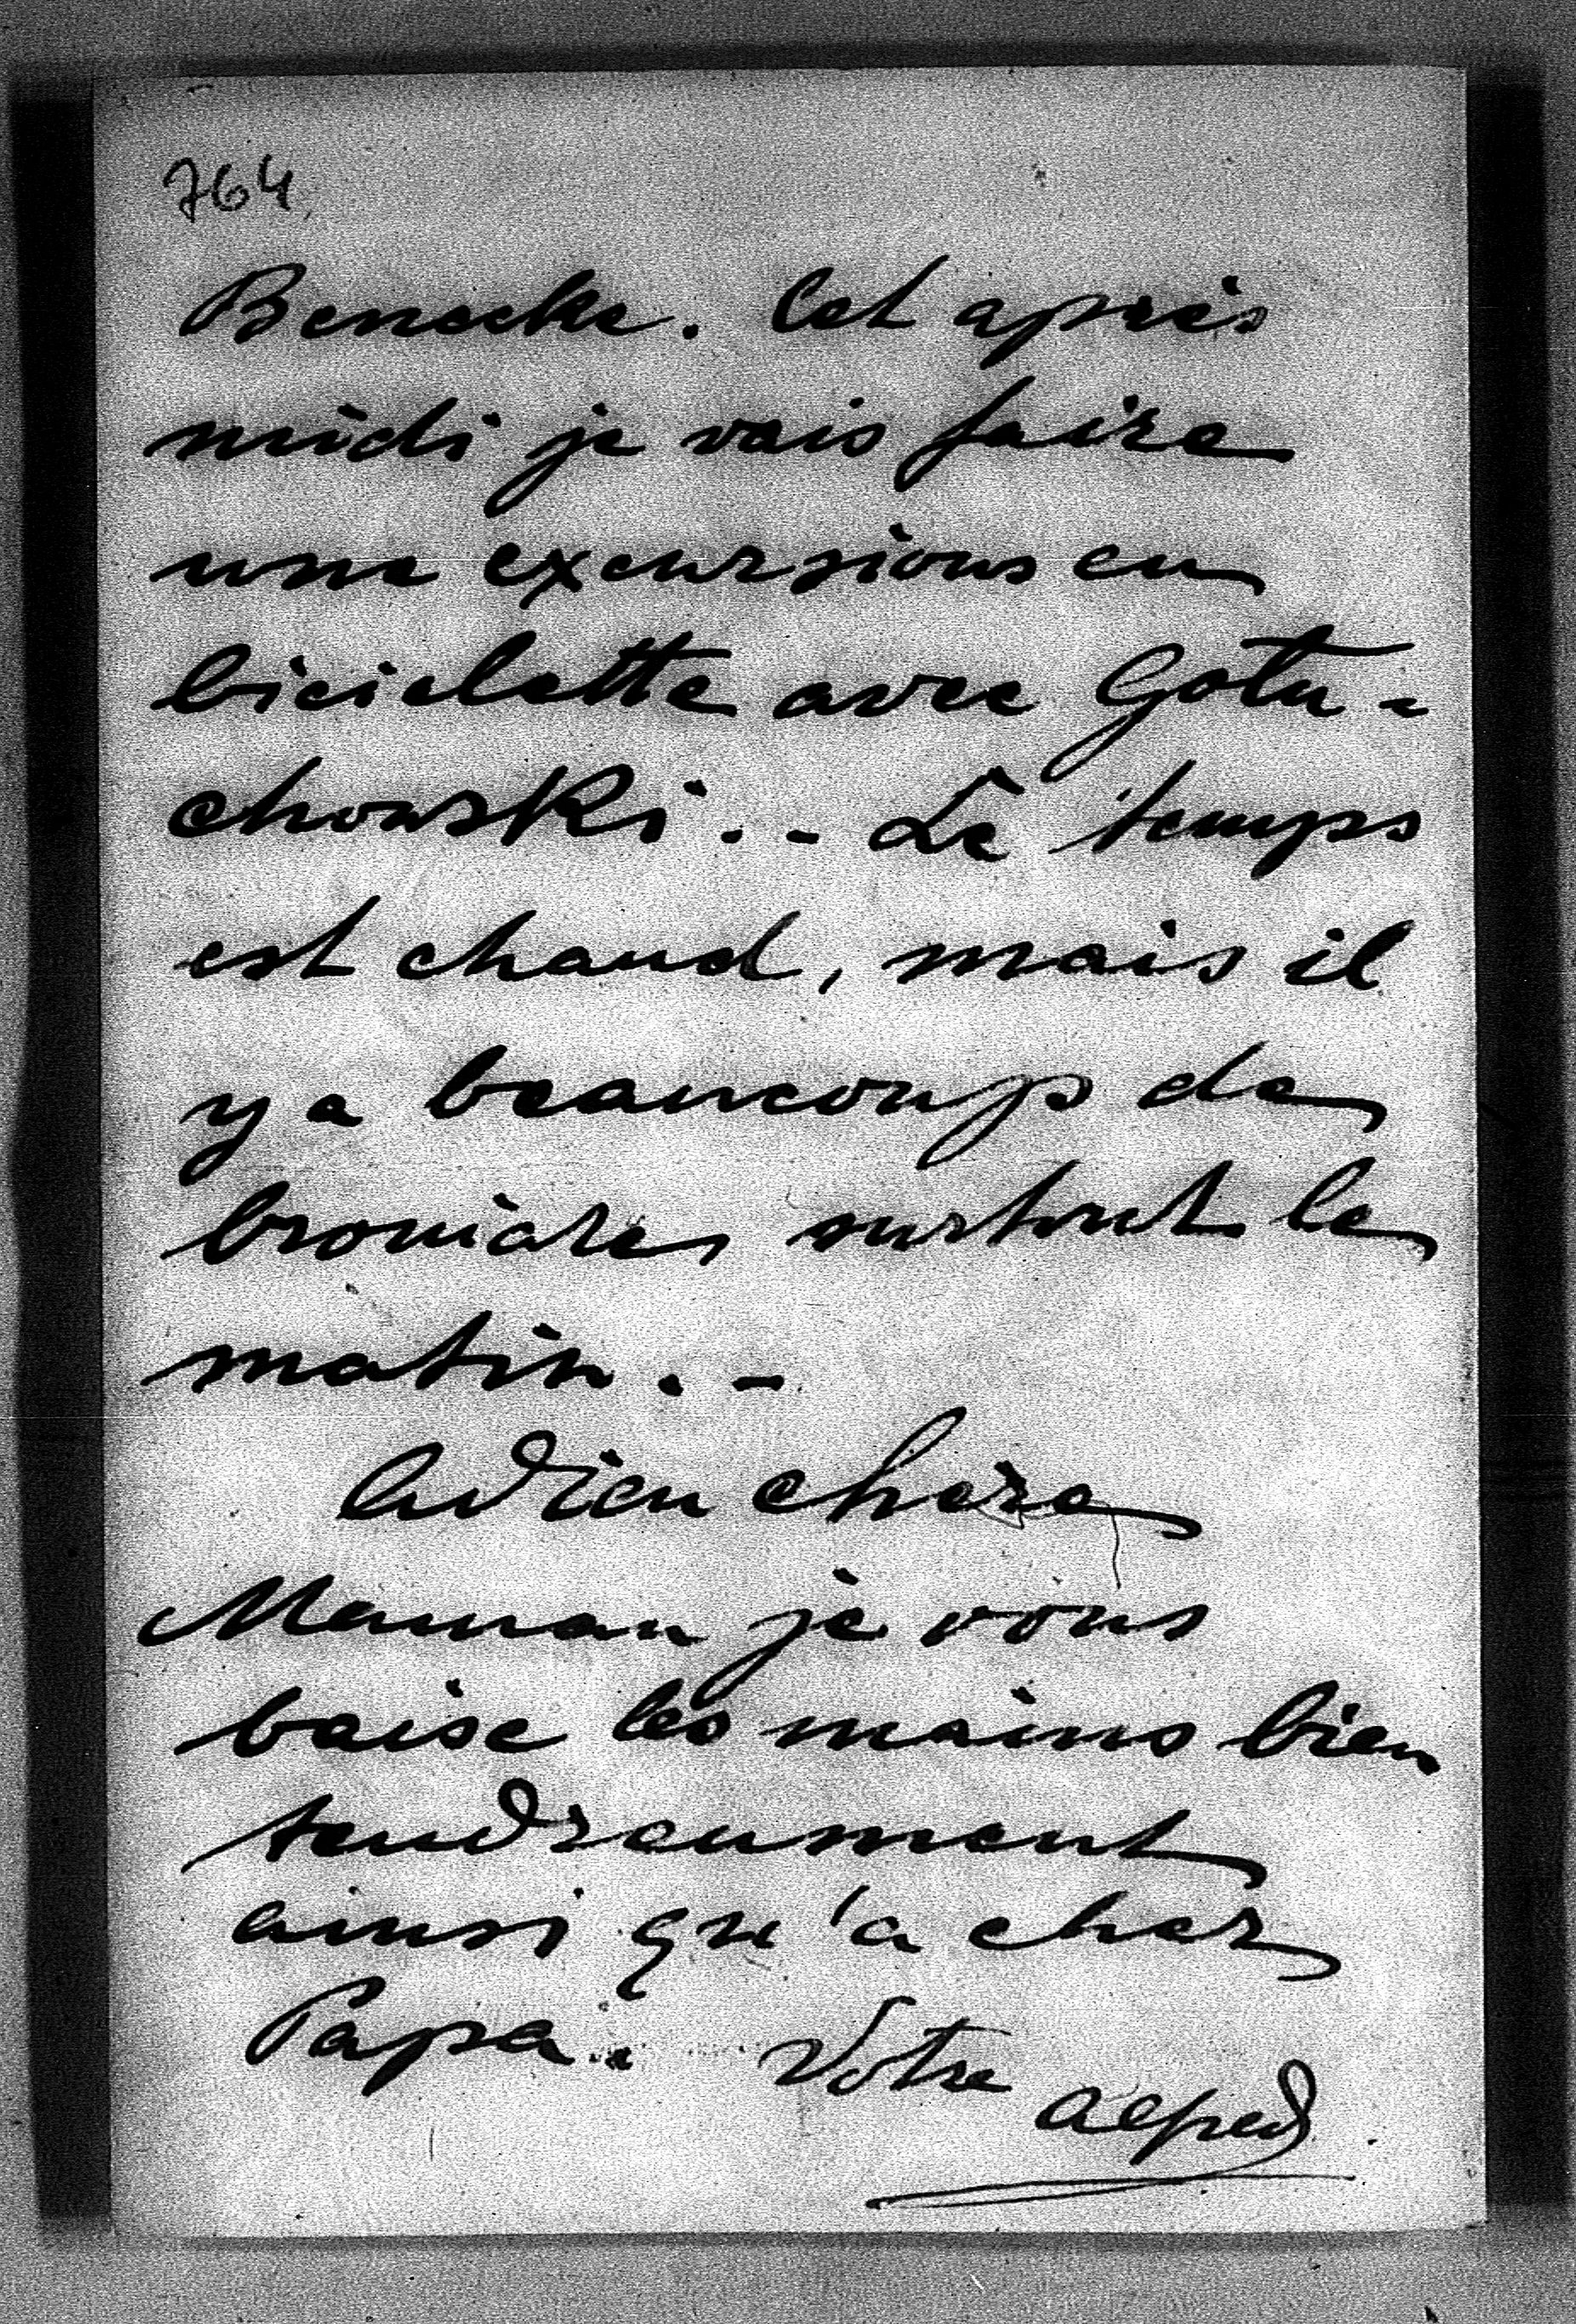 764
Benecke. Cet après
midi je vais faire
une excursions en
biciclette avec Golu-
chowski. - Le temps
est chaud, mais il
y a beaucoup de
brouiares surtout le
matin. -
Adieu chere
Maman je vous
baise les mains bien
tendreument
ainsi qu'a cher
Papa. Votre Alfred